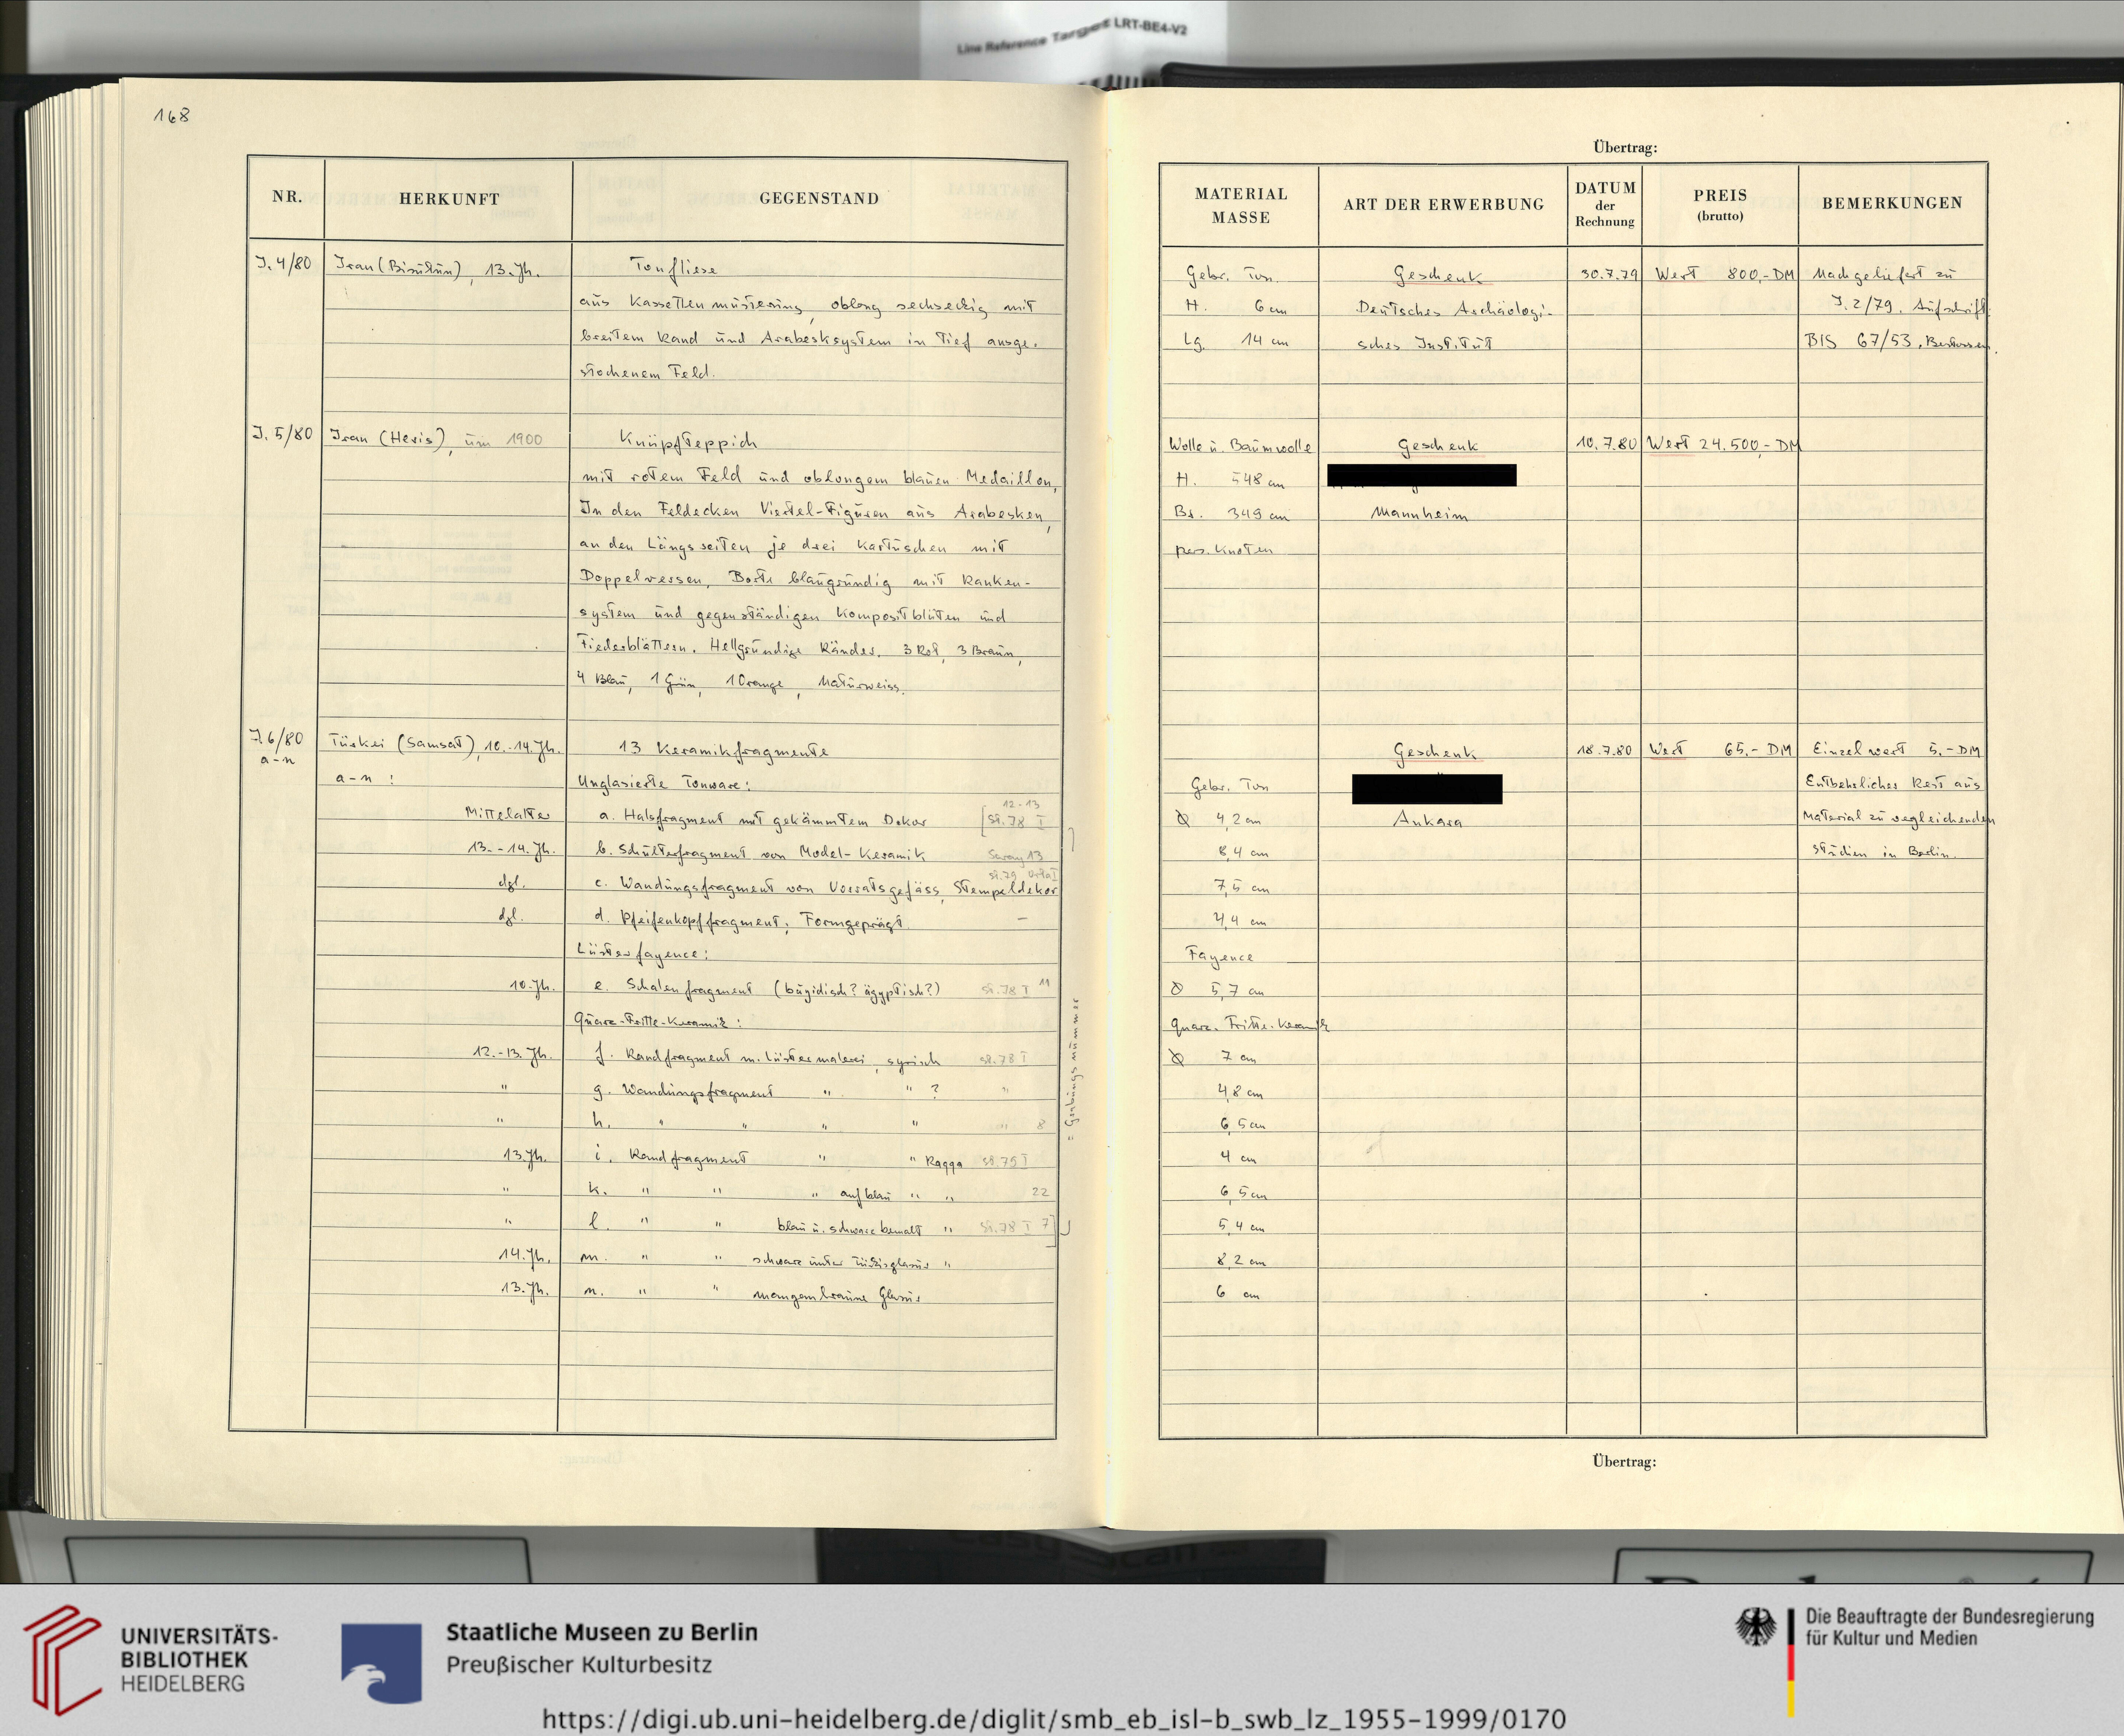 Line Reference Target LRT-BE4-V2
168
NR.
HERKUNFT
GEGENSTAND
J. 4/80
Iran (Bisutun), 13. Jh.
Tonfliese
aus Kassettenmusterung, oblong sechseckig mit
breitem Rand und Arabesksystem in tief ausge-
stochenem Feld.
J. 5/80
Iran (Heris), um 1900
Knüpfteppich
mit rotem Feld und oblongem blauen Medaillon,
In den Feldecken Viertel-Figuren aus Arabesken,
an den Längsseiten je drei Kartuschen mit
Doppelversen, Borte blaugrundig mit Ranken-
system und gegenständigen Kompositblüten und
Fiederblättern. Hellgrundige Ränder. 3 Rot, 3 Braun,
4 Blau, 1 Grün, 1 Orange, Naturweiss.
J. 6/80
a-n
Türkei (Samsat), 10.-14. Jh.
13 Keramikfragmente
a-n :
Unglasierte Tonware:
12-13
Mittelalter
a. Halsfragment mit gekämmtem Dekor
[St. 78 I
13.-14. Jh.
b. Schulterfragment von Model-Keramik
Saray 13
St. 79
dgl.
c. Wandungsfragment von Vorratsgefäss, Stempeldekor
dgl.
d. Pfeifenkopffragment; Formgeprägt
–
Lüsterfayence:
10. Jh.
e. Schalenfragment (bügidisch? ägyptisch?)
St. 78 I 11
Quarz-Fritte-Keramik:
12.-13. Jh.
f. Randfragment m. Lüstermalerei, syrisch
St. 78 I
"
g. Wandungsfragment " " ?
"
"
h. " " " "
" 8
13. Jh.
i. Randfragment " " Raqqa
St. 75 I
"
k. " " " auf blau " "
22
"
l. " " blau u. schwarz bemalt "
St. 78 I 7]
14. Jh.
m. " " schwarz unter Türkisglasur "
13. Jh.
n. " " manganbraune Glasur
= Grabungsnummer
Übertrag:
MATERIAL
MASSE
ART DER ERWERBUNG
DATUM
der
Rechnung
PREIS
(brutto)
BEMERKUNGEN
Gebr. Ton.
Geschenk
30.7.79
Wert 800,- DM
Nachgeliefert zu
H. 6 cm
Deutsches Archäologi-
J. 2/79. Aufschrift:
Lg. 14 cm
sches Institut
BIS 67/53, Bestossen.
Wolle u. Baumwolle
Geschenk
10.7.80
Wert 24.500,- DM
H. 548 cm
Br. 349 cm
Mannheim
pers. Knoten
Geschenk
18.7.80
Wert 65,- DM
Einzelwert 5,- DM
Gebr. Ton
Entbehrlicher Rest aus
Ø 4,2 cm
Ankara
Material zu vergleichenden
8,4 cm
Studien in Berlin.
7,5 cm
4,4 cm
Fayence
Ø 5,7 cm
Quarz-Fritte-Keramik
Ø 7 cm
4,8 cm
6,5 cm
4 cm
6,5 cm
5,4 cm
8,2 cm
6 cm
Übertrag:
UNIVERSITÄTS-
BIBLIOTHEK
HEIDELBERG
Staatliche Museen zu Berlin
Preußischer Kulturbesitz
Die Beauftragte der Bundesregierung
für Kultur und Medien
https://digi.ub.uni-heidelberg.de/diglit/smb_eb_isl-b_swb_lz_1955-1999/0170